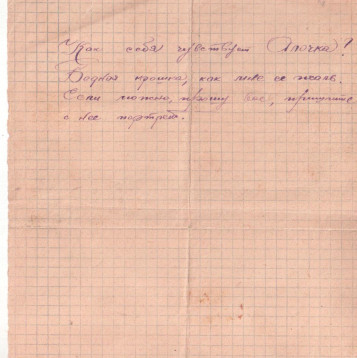 Как себя чувствует Алочка?
Бедная крошка, как мне ее жаль.
Если можно, прошу Вас, пришлите
с нее портрет.